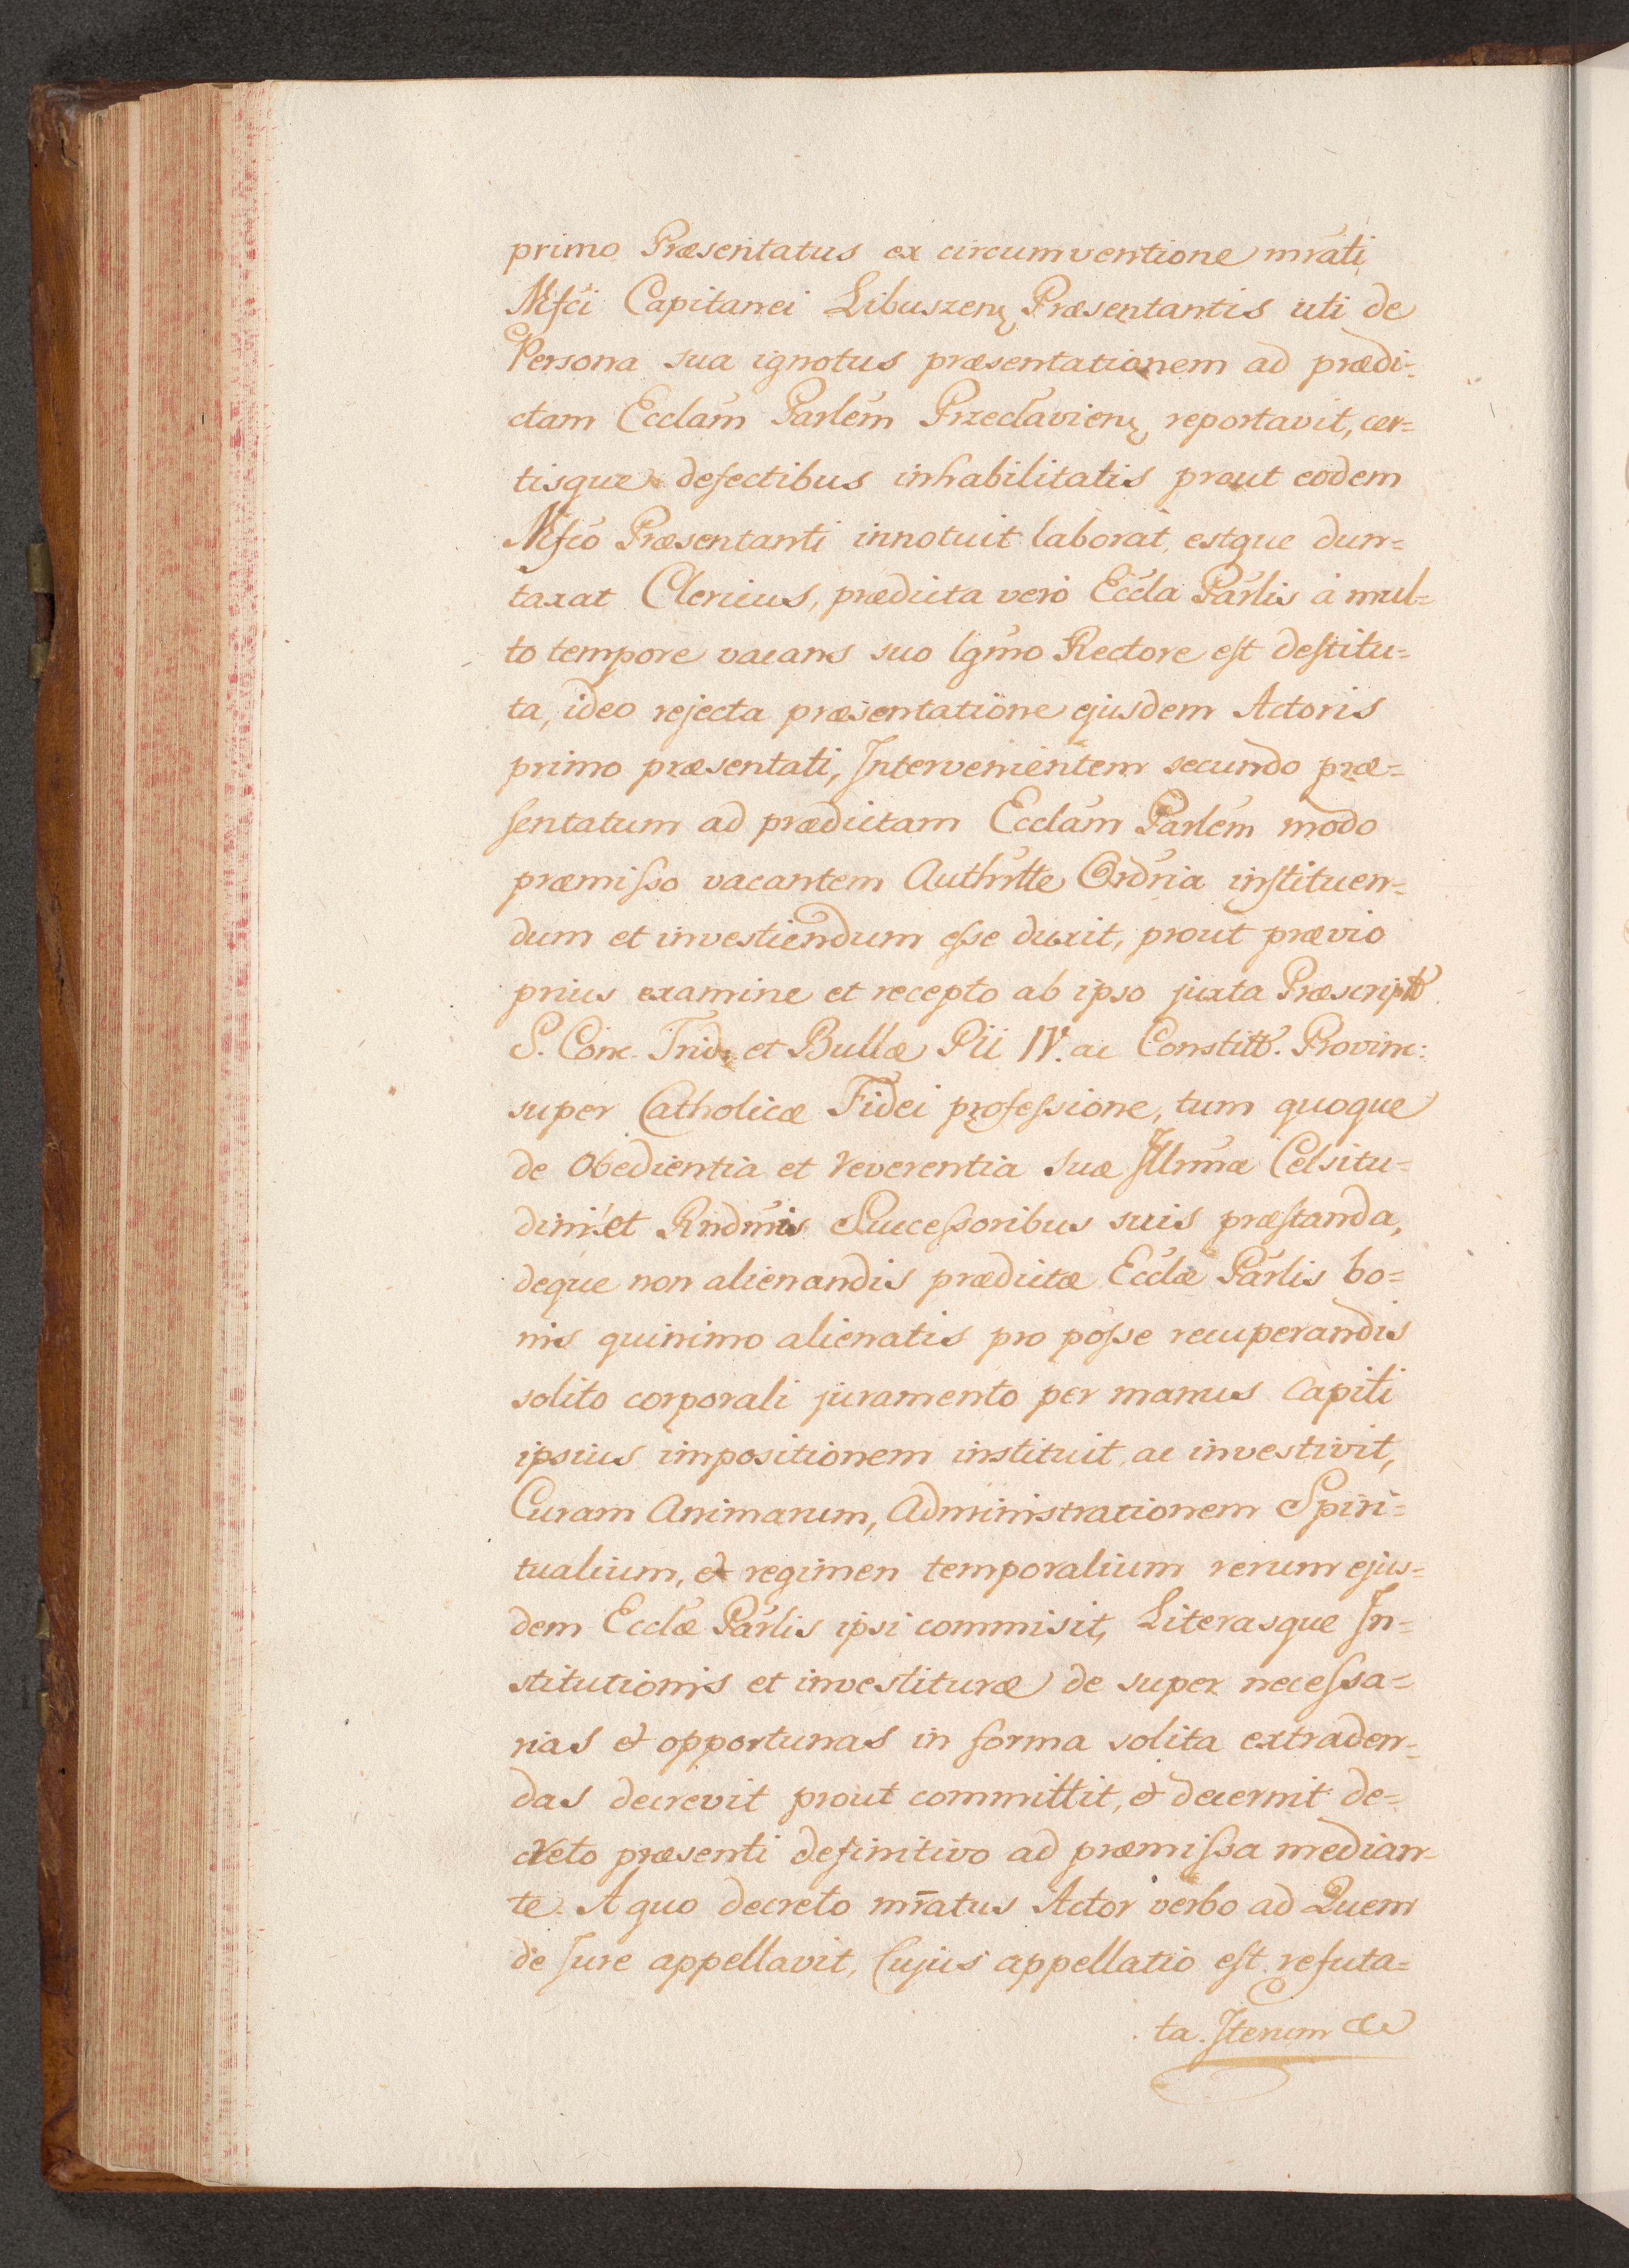 primo Præsentatus ex circumventione mrati
Mfci Capitanei Libuszen Præsentantis uti de
Persona sua ignotus præsentationem ad prædi=
ctam Ecclam Parlem Przeclavien reportavit, cer=
tisque defectibus inhabilitatis prout eodem
Mfco Præsentanti innotuit laborat, estque dun=
taxat Clericus, prædicta vero Eccla Parlis à mul=
to tempore vacans suo lgmo Rectore est destitu=
ta, ideo rejecta præsentatione ejusdem Actoris
primo præsentati, Intervenientem secundo præ=
sentatum ad prædictam Ecclam Parlem modo
præmisso vacantem Authrtte Ordria instituen=
dum et investiendum esse duxit, prout prævio
prius examine et recepto ab ipso juxta Præscript
S. Conc. Trid: et Bullæ Pii IV. ac Constitt. Provinc:
super Catholicæ Fidei professione, tum quoque
de Obedientia et reverentia suæ Illmæ Celsitu=
dini et Rndmis Successoribus suis præstanda,
deque non alienandis prædictæ Ecclæ Parlis bo=
nis quinimo alienatis pro posse recuperandis
solito corporali juramento per manus capiti
ipsius impositionem instituit, ac investivit,
Curam Animarum, Administrationem Spiri=
tualium, et regimen temporalium rerum ejus=
dem Ecclæ Parlis ipsi commisit, Literasque In=
stitutionis et investituræ de super necessa=
rias & opportunas in forma solita extraden=
das decrevit prout committit, & decernit de=
creto præsenti definitivo ad præmissa median=
te. A quo decreto mratus Actor verbo ad Quem
de Jure appellavit, Cujus appellatio est refuta=
ta. Iterum &c